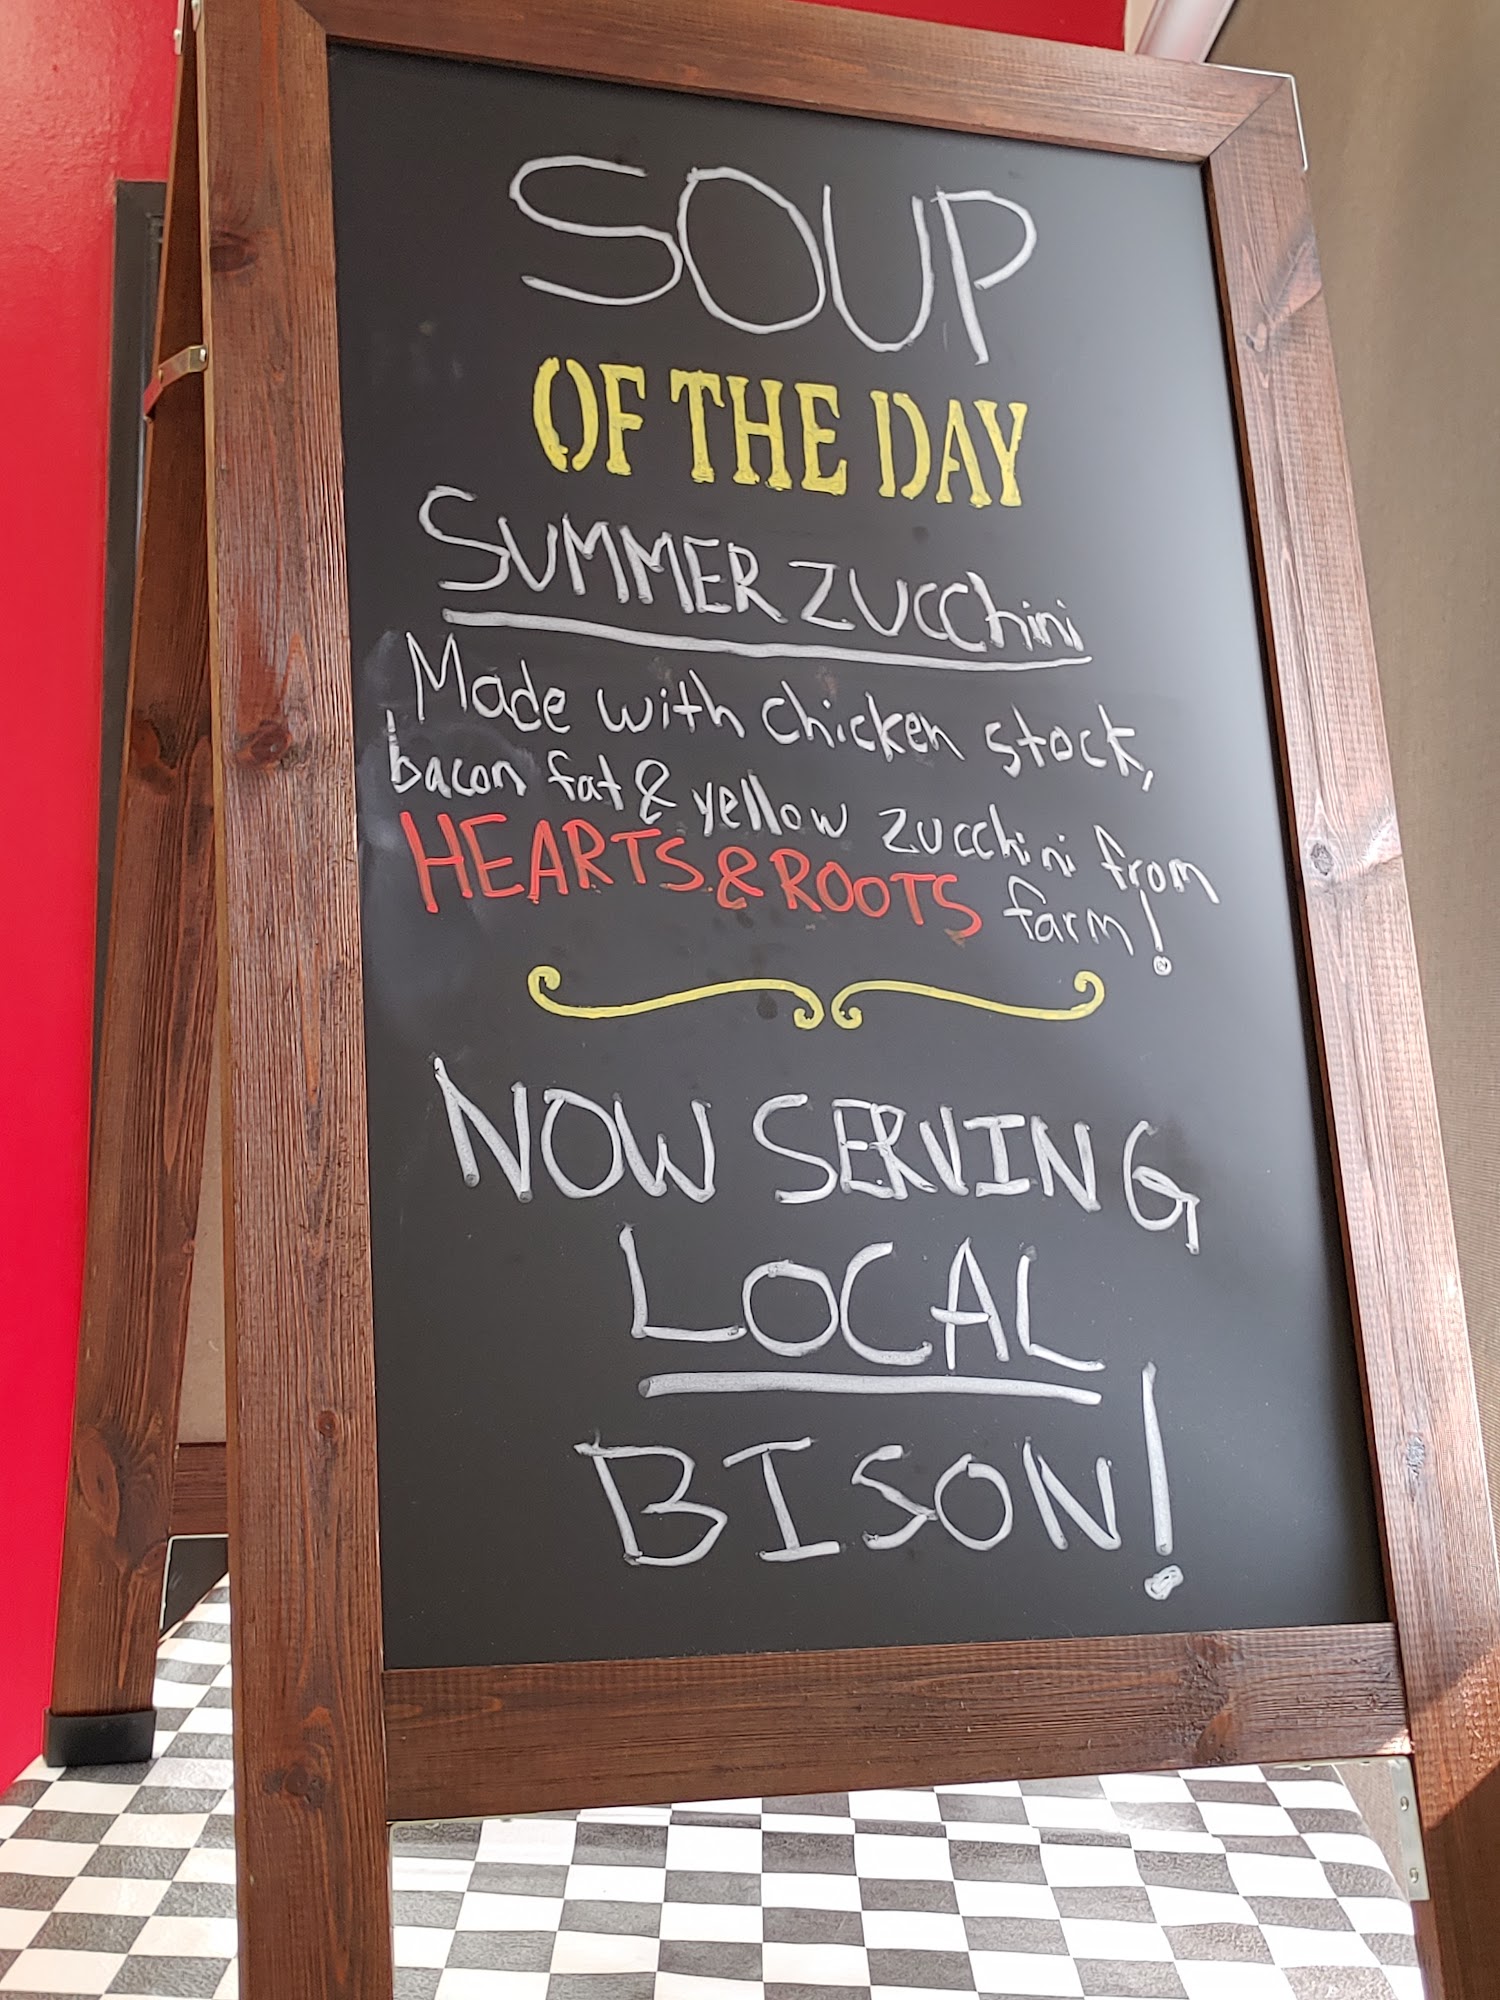 SOUP
OF THE DAY
SUMMER ZUCChini
Made with chicken stock,
bacon fat & yellow zucchini from
HEARTS & ROOTS farm!
NOW SERVING
LOCAL
BISON!